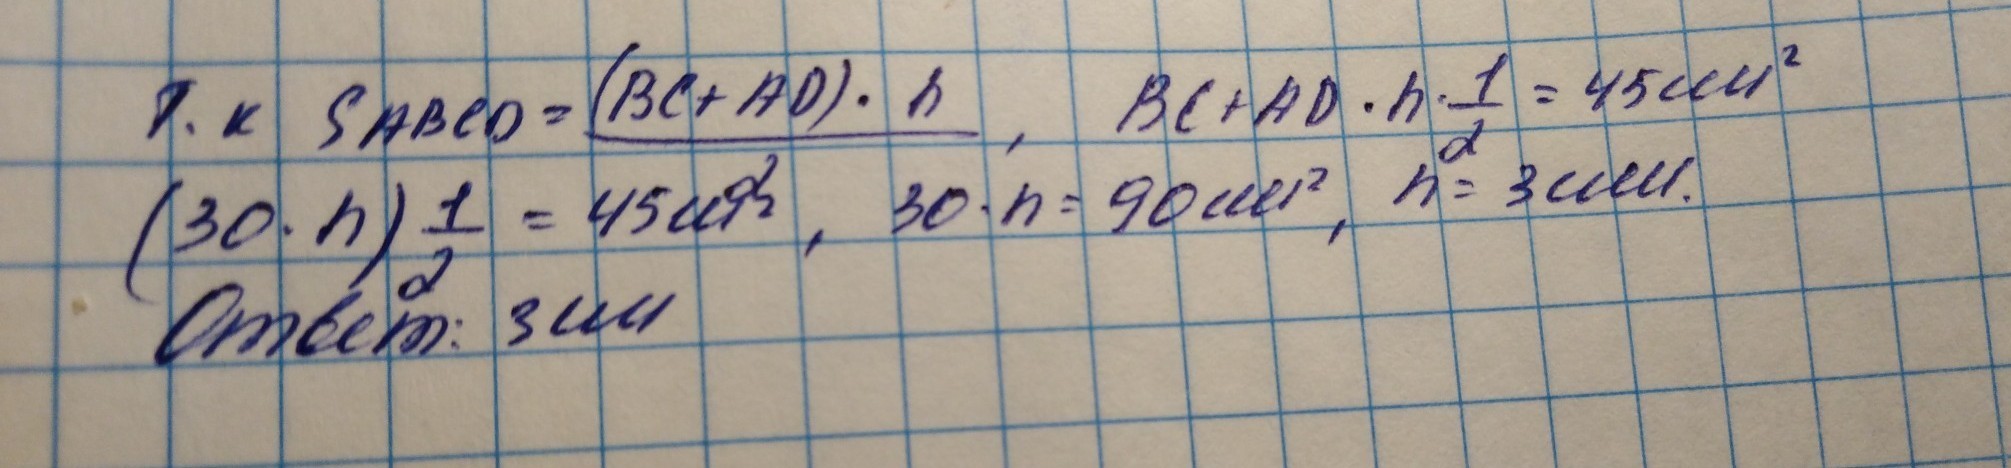 Т. к SABCD = (BC + AD) · h / 2, BC + AD · h · 1/2 = 45 мм²
(30 · h) 1/2 = 45 мм², 30 · h = 90 мм², h = 3 мм.
Ответ: 3 мм